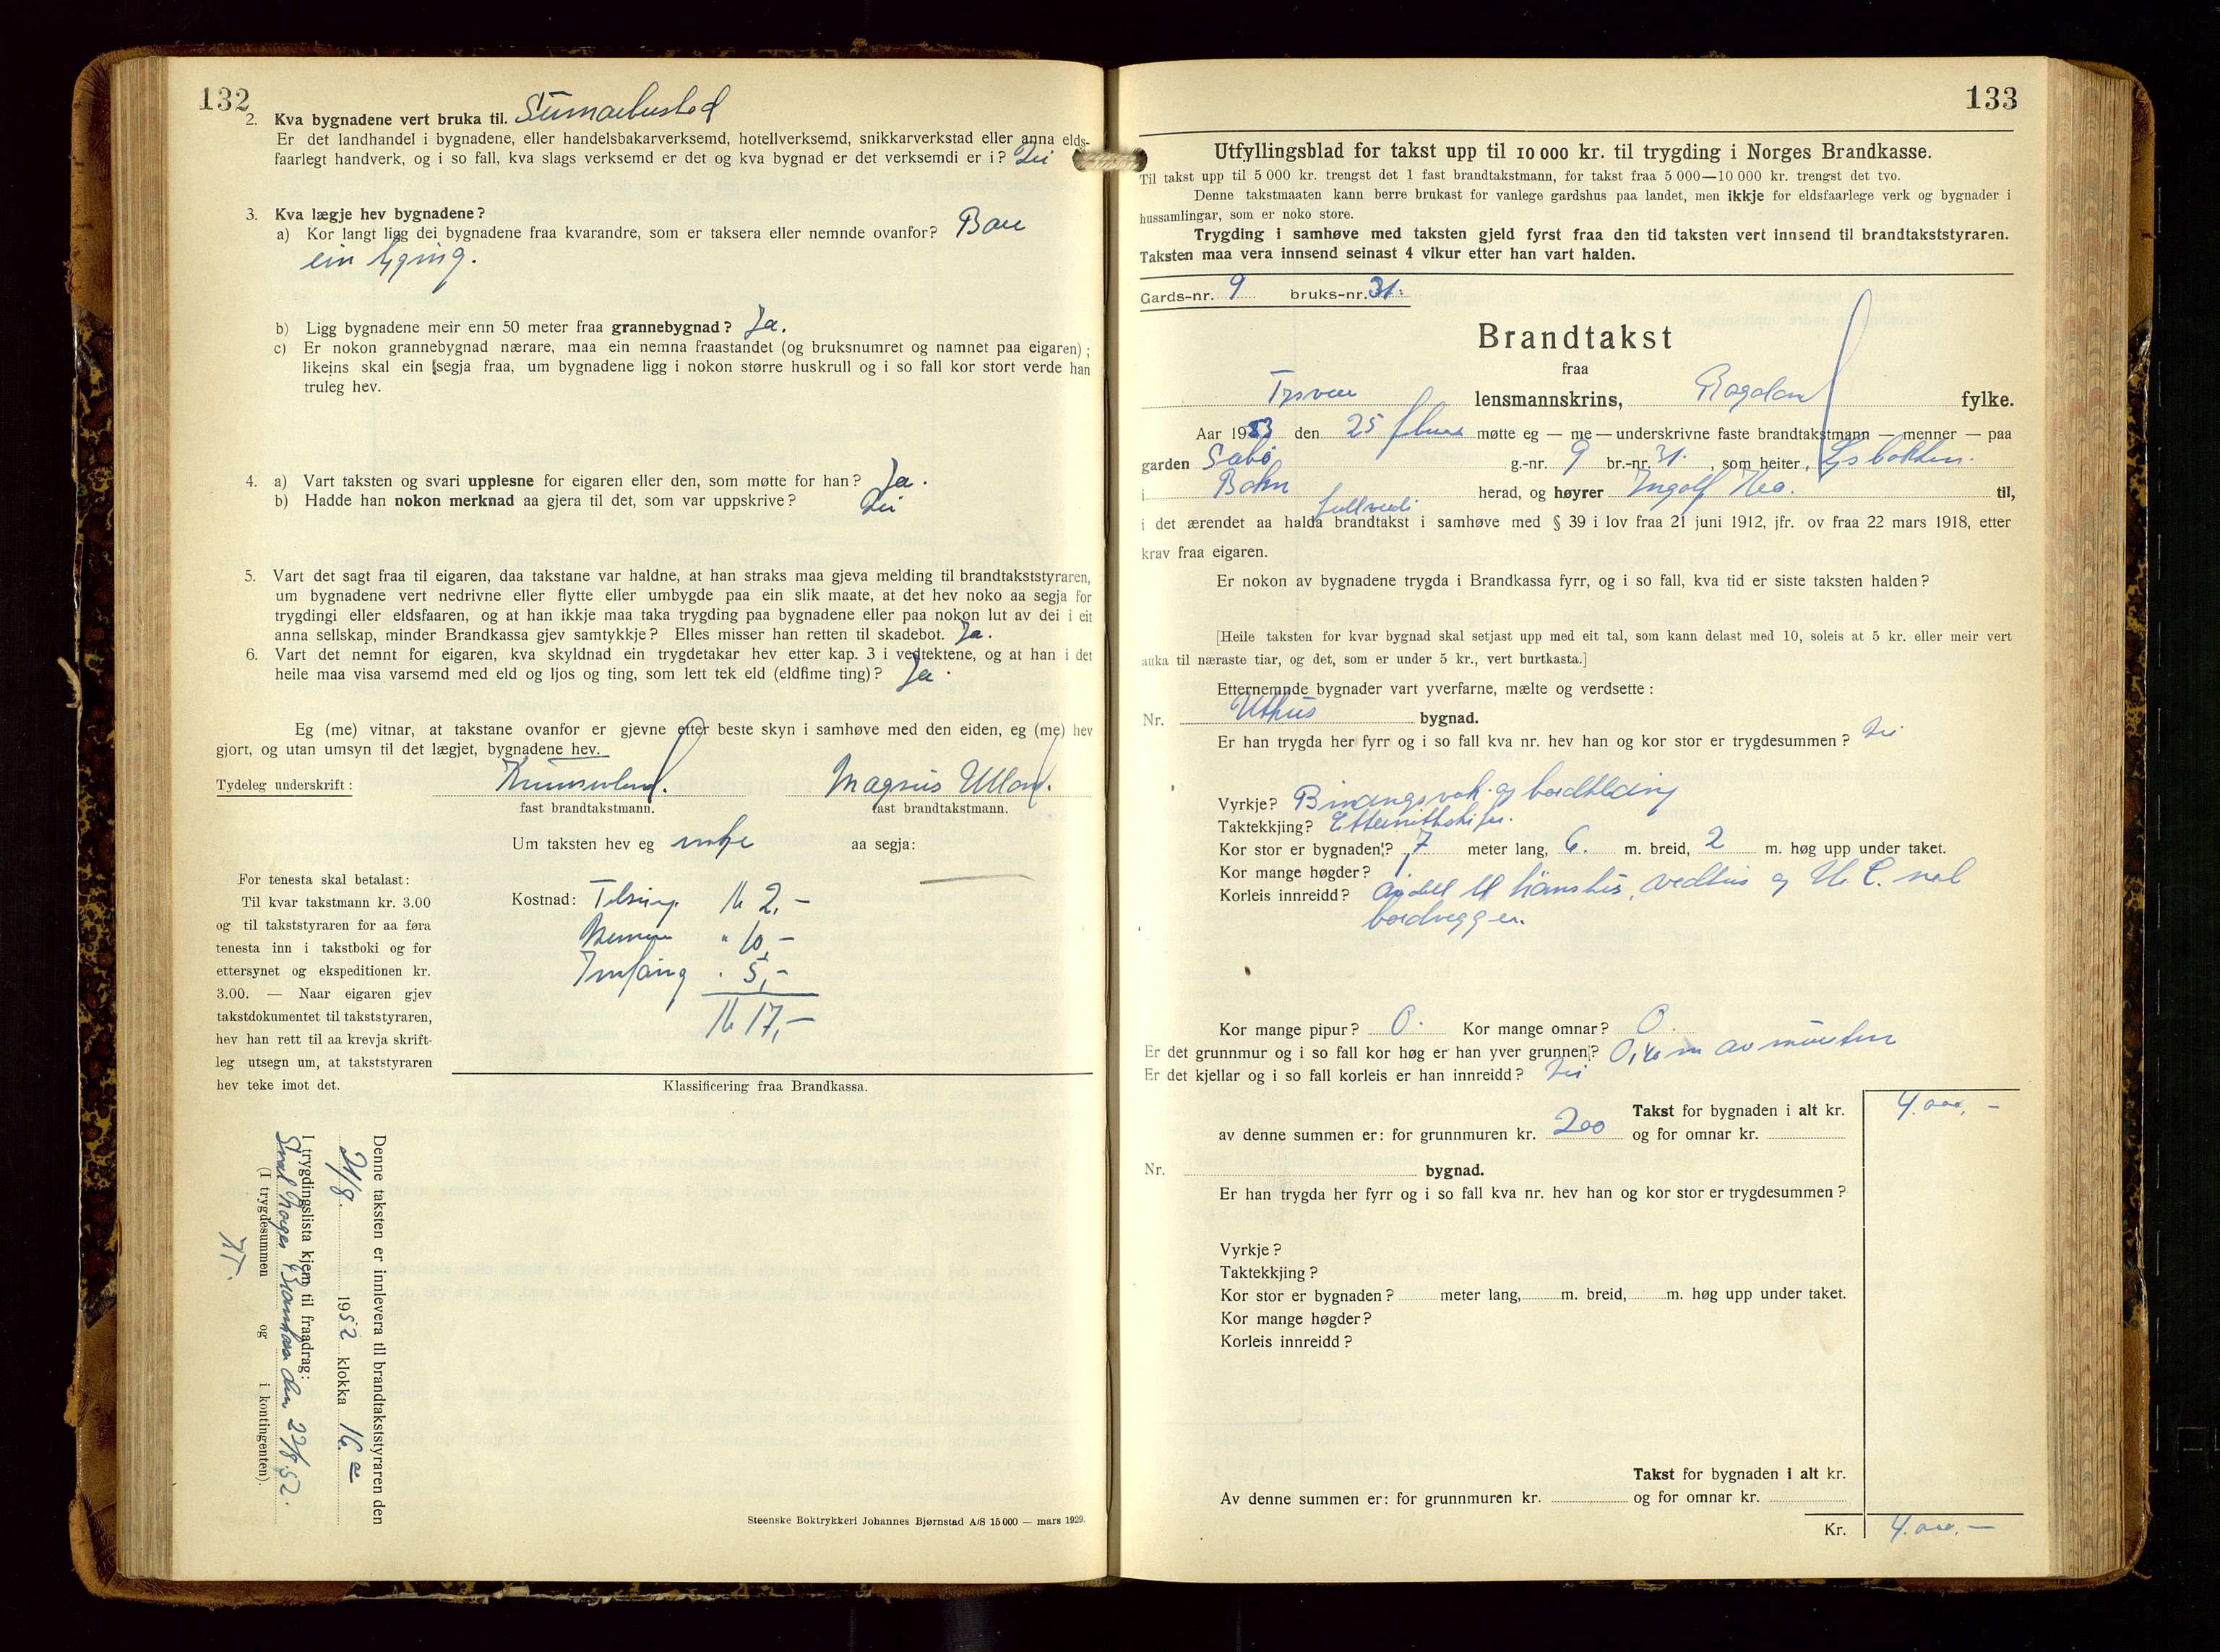 132
2. Kva bygnadene vert bruka til. Sumarbustad
Er det landhandel i bygnadene, eller handelsbakarverksemd, hotellverksemd, snikkarverkstad eller anna elds-
faarlegt handverk, og i so fall, kva slags verksemd er det og kva bygnad er det verksemdi er i? Nei
3. Kva lægje hev bygnadene?
a) Kor langt ligg dei bygnadene fraa kvarandre, som er taksera eller nemnde ovanfor? Bare
ein bygning.
b) Ligg bygnadene meir enn 50 meter fraa grannebygnad? Ja.
c) Er nokon grannebygnad nærare, maa ein nemna fraastandet (og bruksnumret og namnet paa eigaren);
likeins skal ein segja fraa, um bygnadene ligg i nokon større huskrull og i so fall kor stort verde han
truleg hev.
4. a) Vart taksten og svari upplesne for eigaren eller den, som møtte for han? Ja.
b) Hadde han nokon merknad aa gjera til det, som var uppskrive? Nei
5. Vart det sagt fraa til eigaren, daa takstane var haldne, at han straks maa gjeva melding til brandtakststyraren,
um bygnadene vert nedrivne eller flytte eller umbygde paa ein slik maate, at det hev noko aa segja for
trygdingi eller eldsfaaren, og at han ikkje maa taka trygding paa bygnadene eller paa nokon lut av dei i eit
anna sellskap, minder Brandkassa gjev samtykkje? Elles misser han retten til skadebot. Ja.
6. Vart det nemnt for eigaren, kva skyldnad ein trygdetakar hev etter kap. 3 i vedtektene, og at han i det
heile maa visa varsemd med eld og ljos og ting, som lett tek eld (eldfime ting)? Ja.
Eg (me) vitnar, at takstane ovanfor er gjevne etter beste skyn i samhøve med den eiden, eg (me) hev
gjort, og utan umsyn til det lægjet, bygnadene hev.
Tydeleg underskrift: Magnus
fast brandtakstmann. fast brandtakstmann.
Um taksten hev eg intje aa segja:
For tenesta skal betalast:
Til kvar takstmann kr. 3.00
og til takststyraren for aa føra
tenesta inn i takstboki og for
ettersynet og ekspeditionen kr.
3.00. — Naar eigaren gjev
takstdokumentet til takststyraren,
hev han rett til aa krevja skrift-
leg utsegn um, at takststyraren
hev teke imot det.
Kostnad: kr 2,-
" 10,-
" 5,-
kr 17,-
Klassificering fraa Brandkassa.
Denne taksten er innlevera til brandtakststyraren den
21/8. 1952 klokka 16 00
I trygdingslista kjem til fraadrag:
Norges Brannkasse den 22/8.52.
(I trygdesummen og i kontingenten).
Steenske Boktrykkeri Johannes Bjørnstad A/S 15 000 — mars 1929.
133
Utfyllingsblad for takst upp til 10 000 kr. til trygding i Norges Brandkasse.
Til takst upp til 5 000 kr. trengst det 1 fast brandtakstmann, for takst fraa 5 000—10 000 kr. trengst det tvo.
Denne takstmaaten kann berre brukast for vanlege gardshus paa landet, men ikkje for eldsfaarlege verk og bygnader i
hussamlingar, som er noko store.
Trygding i samhøve med taksten gjeld fyrst fraa den tid taksten vert innsend til brandtakststyraren.
Taksten maa vera innsend seinast 4 vikur etter han vart halden.
Gards-nr. 9 bruks-nr. 31.
Brandtakst
fraa
Tysvær lensmannskrins, Rogaland fylke.
Aar 1953 den 25 februar møtte eg — me — underskrivne faste brandtakstmann — menner — paa
garden Sæbø g.-nr. 9 br.-nr. 31. , som heiter
i Bokn herad, og høyrer Ingolf til,
i det ærendet aa halda fullverdi brandtakst i samhøve med § 39 i lov fraa 21 juni 1912, jfr. ov fraa 22 mars 1918, etter
krav fraa eigaren.
Er nokon av bygnadene trygda i Brandkassa fyrr, og i so fall, kva tid er siste taksten halden?
[Heile taksten for kvar bygnad skal setjast upp med eit tal, som kann delast med 10, soleis at 5 kr. eller meir vert
auka til næraste tiar, og det, som er under 5 kr., vert burtkasta.]
Etternemnde bygnader vart yverfarne, mælte og verdsette:
Nr. Uthus bygnad.
Er han trygda her fyrr og i so fall kva nr. hev han og kor stor er trygdesummen? Nei
Vyrkje? Bindingsverk og bordkleding
Taktekkjing? Etternittskifer.
Kor stor er bygnaden? 7 meter lang, 6. m. breid, 2 m. høg upp under taket.
Kor mange høgder? 1
Korleis innreidd? avdelt til hønshus, vedhus og W.C. med
bordvegger.
Kor mange pipur? 0. Kor mange omnar? 0.
Er det grunnmur og i so fall kor høg er han yver grunnen? 0,40 m av mursten
Er det kjellar og i so fall korleis er han innreidd? Nei
Takst for bygnaden i alt kr. 4.000,-
av denne summen er: for grunnmuren kr. 200 og for omnar kr.
Nr. bygnad.
Er han trygda her fyrr og i so fall kva nr. hev han og kor stor er trygdesummen?
Vyrkje?
Taktekkjing?
Kor stor er bygnaden? meter lang, m. breid, m. høg upp under taket.
Kor mange høgder?
Korleis innreidd?
Takst for bygnaden i alt kr.
Av denne summen er: for grunnmuren kr. og for omnar kr.
Kr. 4.000,-